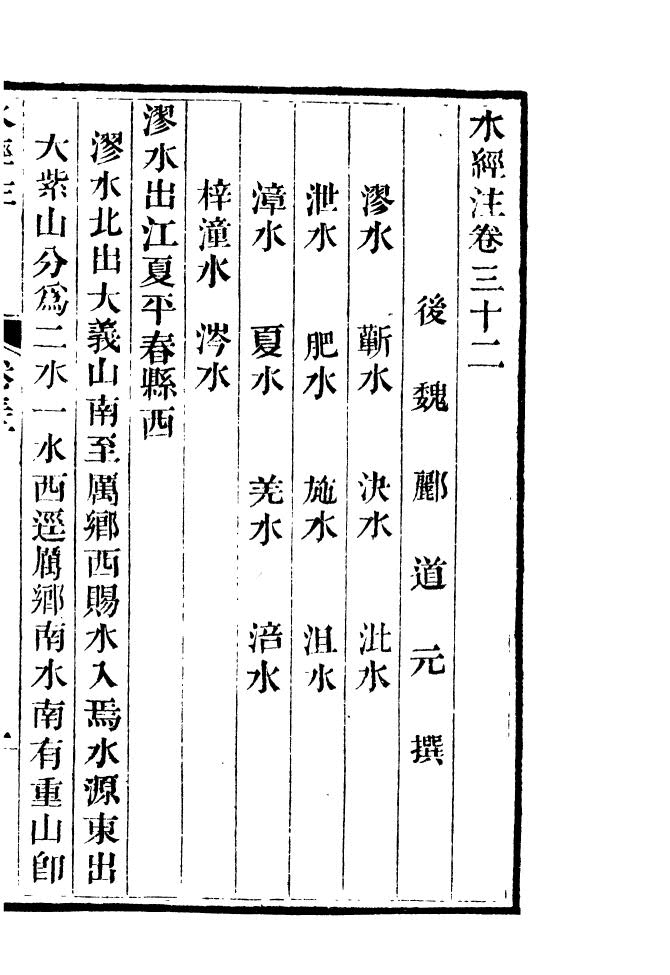 水經注卷三十二
後魏酈道元撰
漻水　蘄水　決水　沘水
泄水　肥水　施水　沮水
漳水　夏水　羌水　涪水
梓潼水　涔水
漻水出江夏平春縣西
漻水北出大義山南至厲鄉西賜水入焉水源東出
大紫山分爲二水一水西逕厲鄉南水南有重山卽